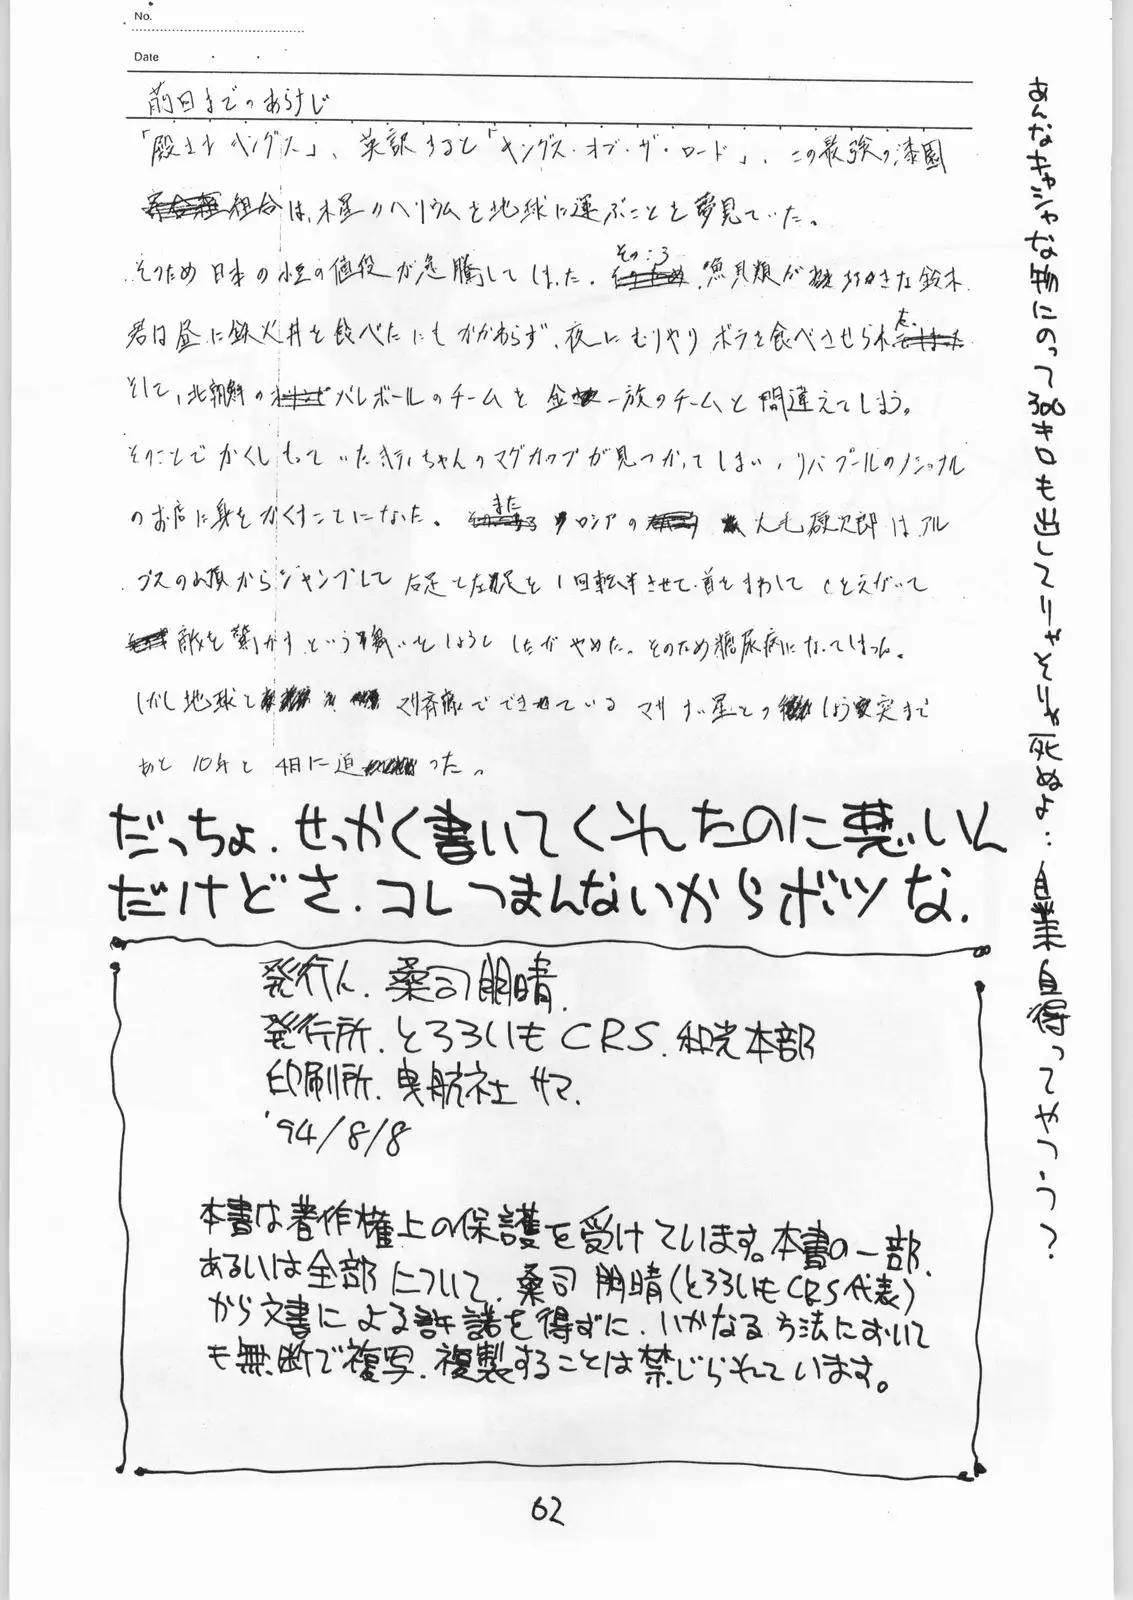 No.
Date
前回までのあらすじ
「殿さまキングス」、英訳すると「キングス・オブ・ザ・ロード」、この最強の漆園
組合は、木星のヘリウムを地球に運ぶことを夢見ていた。
そのため日本の小豆の値段が急騰してしまった。そのころ、魚貝類が大好きな鈴木
君は昼に鉄火丼を食べたにもかかわらず、夜にむりやりボラを食べさせられた。
そして、北朝鮮のバレーボールのチームを金一族のチームと間違えてしまう。
そのことでかくしもっていたキティちゃんのマグカップが見つかってしまい、リバプールの
のお店に身をかくすことになった。また ロシアの 大毛硬次郎はアル
プスの山頂からジャンプして右足と左足を1回転半させて、首をまわして
敵を驚かすという をしようとしたがやめた。そのため糖尿病になってしまった。
しかし地球と でできている まで
あと10年と4日に迫った。
だっちょ.せっかく書いてくれたのに悪いん
だけどさ.コレつまんないからボツな.
発行人.桑司朋晴.
発行所.とろろいもCRS.和光本部
印刷所.曳航社サマ.
'94/8/8
本書は著作権上の保護を受けています。本書の一部.
あるいは全部について、桑司朋晴(とろろいもCRS代表)
から文書による許諾を得ずに、いかなる方法においても
も無断で複写.複製することは禁じられています。
あんなキャシャな物にのって300キロも出してりゃそりゃ死ぬよ‥自業自得ってやつう？
62